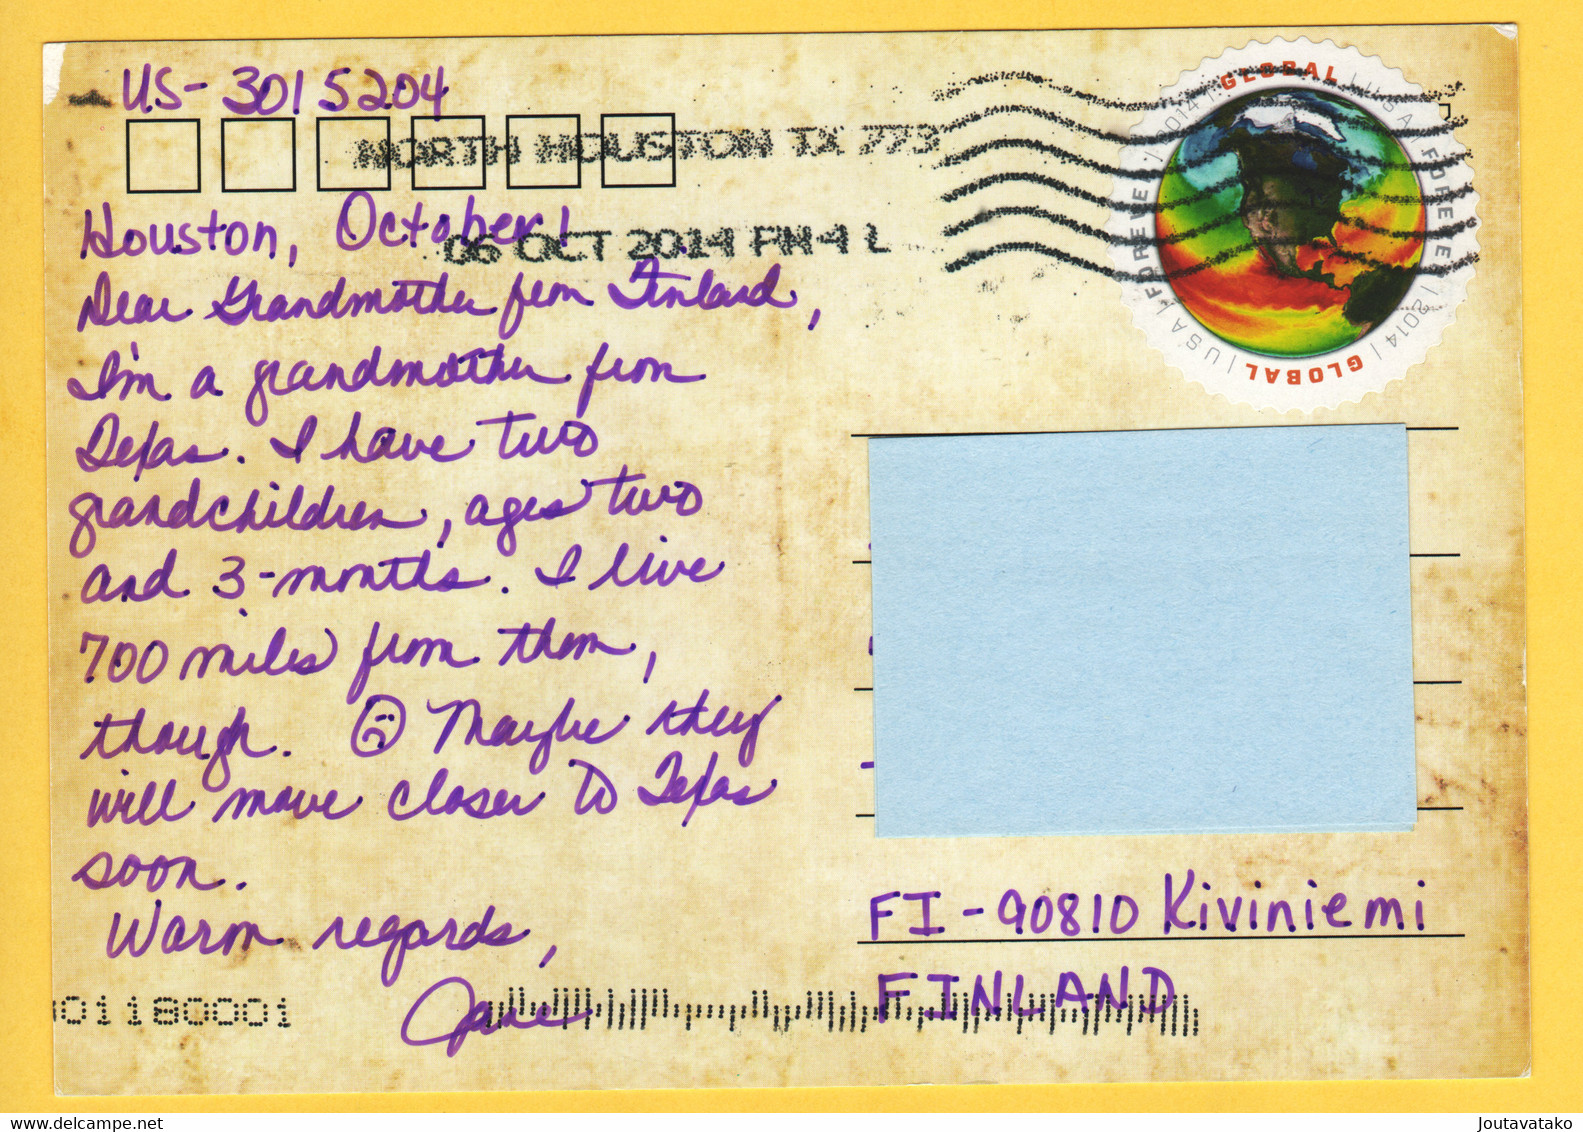 US-3015204
NORTH HOUSTON TX 773
06 OCT 2014 PM 4 L
GLOBAL | USA FOREVER | 2014 | GLOBAL | USA FOREVER | 2014 |
Houston, October!
Dear Grandmother from Finland,
I'm a grandmother from
Texas. I have two
grandchildren, ages two
and 3-months. I live
700 miles from them,
though. ☹ Maybe they
will move closer to Texas
soon.
Warm regards,
Jane
FI-90810 Kiviniemi
FINLAND
01180001
Joutavatako